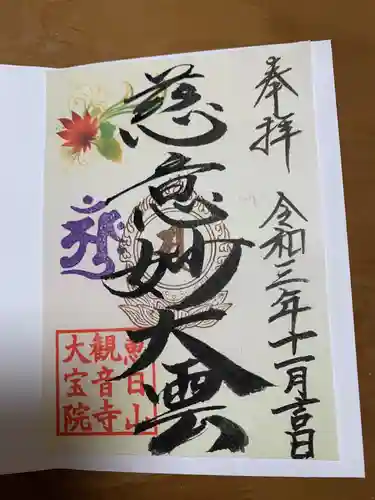 奉拝
令和三年十一月吉日
慈意妙大雲
恵日山
観音寺
大宝院